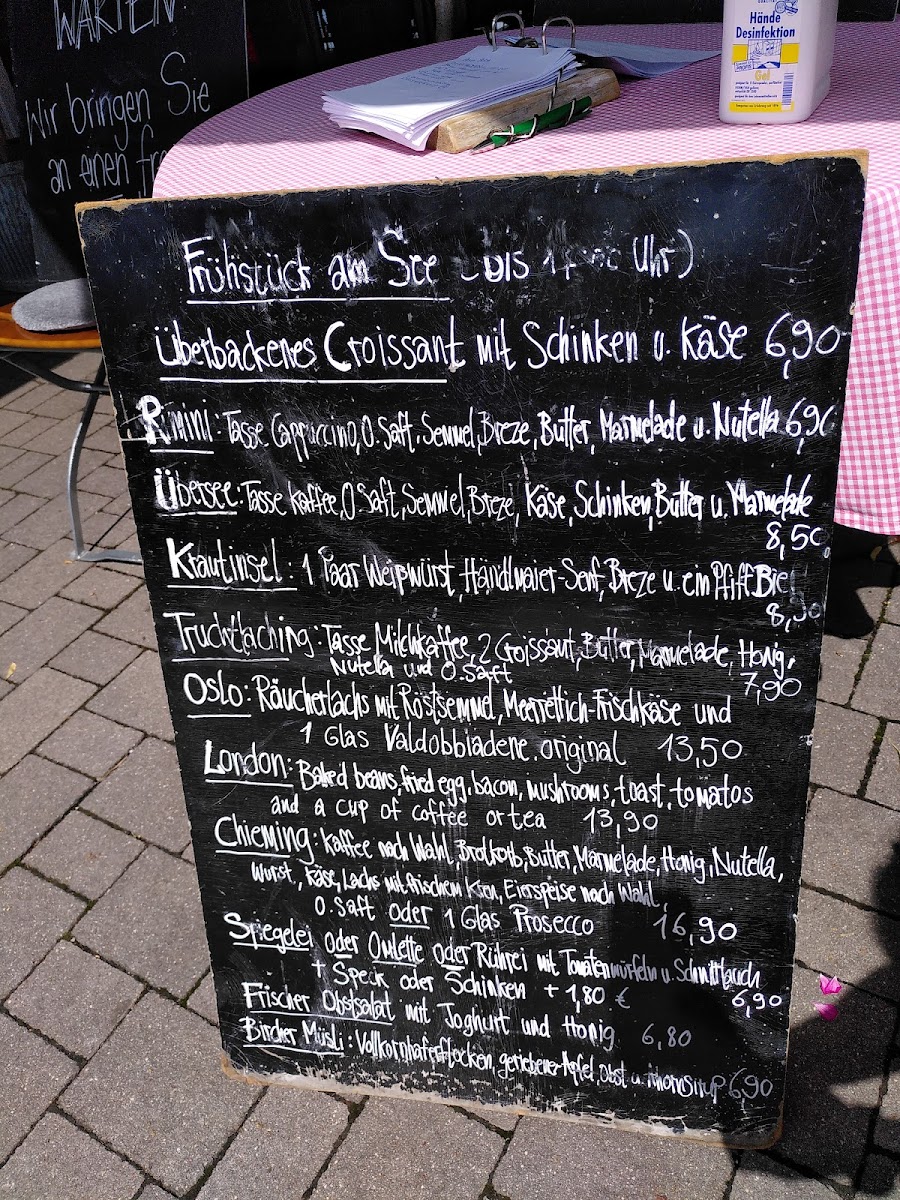 WARTEN!
Wir bringen Sie
an einen
Hände
Desinfektion
Gel
Frühstück am See Uhr)
Überbackenes Croissant mit Schinken u. Käse 6,90
Rimini: Tasse Cappuccino, O.Saft, Semmel, Breze, Butter, Marmelade u. Nutella 6,90
Übersee: Tasse Kaffee, O Saft, Semmel, Breze, Käse, Schinken, Butter u. Marmelade
8,50
Krautinsel: 1 Paar Weißwürst, Händlmaier-Senf, Breze u. ein Pfiff Bier
8,90
Truchtlaching: Tasse Milchkaffee, 2 Croissant, Butter, Marmelade, Honig,
Nutella und O.Saft 7,90
Oslo: Räucherlachs mit Röstsemmel, Meerrettich-Frischkäse und
1 Glas Valdobbiadene original 13,50
London: Baked beans, fried egg, bacon, mushrooms, toast, tomatos
and a cup of coffee or tea 13,90
Chieming: Kaffee nach Wahl, Brotkorb, Butter, Marmelade, Honig, Nutella,
Wurst, Käse, Lachs mit frischem Kren, Eierspeise nach Wahl,
O.Saft oder 1 Glas Prosecco 16,90
Spiegelei oder Omlette oder Rührei mit Tomatenwürfeln u. Schnittlauch
+ Speck oder Schinken + 1,80 € 6,90
Frischer Obstsalat mit Joghurt und Honig 6,80
Bircher Müsli: Vollkornhaferflocken, geriebener Apfel, Obst u. Ahornsirup 6,90